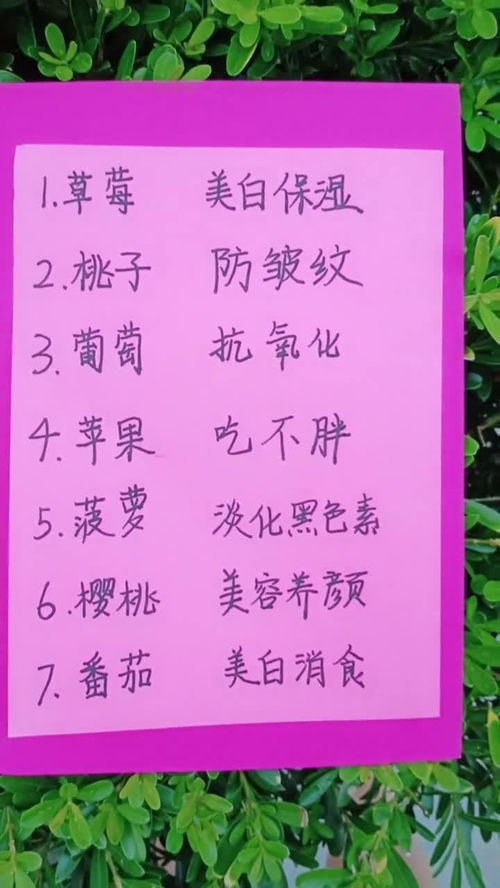 1.草莓 美白保湿
2.桃子 防皱纹
3.葡萄 抗氧化
4.苹果 吃不胖
5.菠萝 淡化黑色素
6.樱桃 美容养颜
7.番茄 美白消食